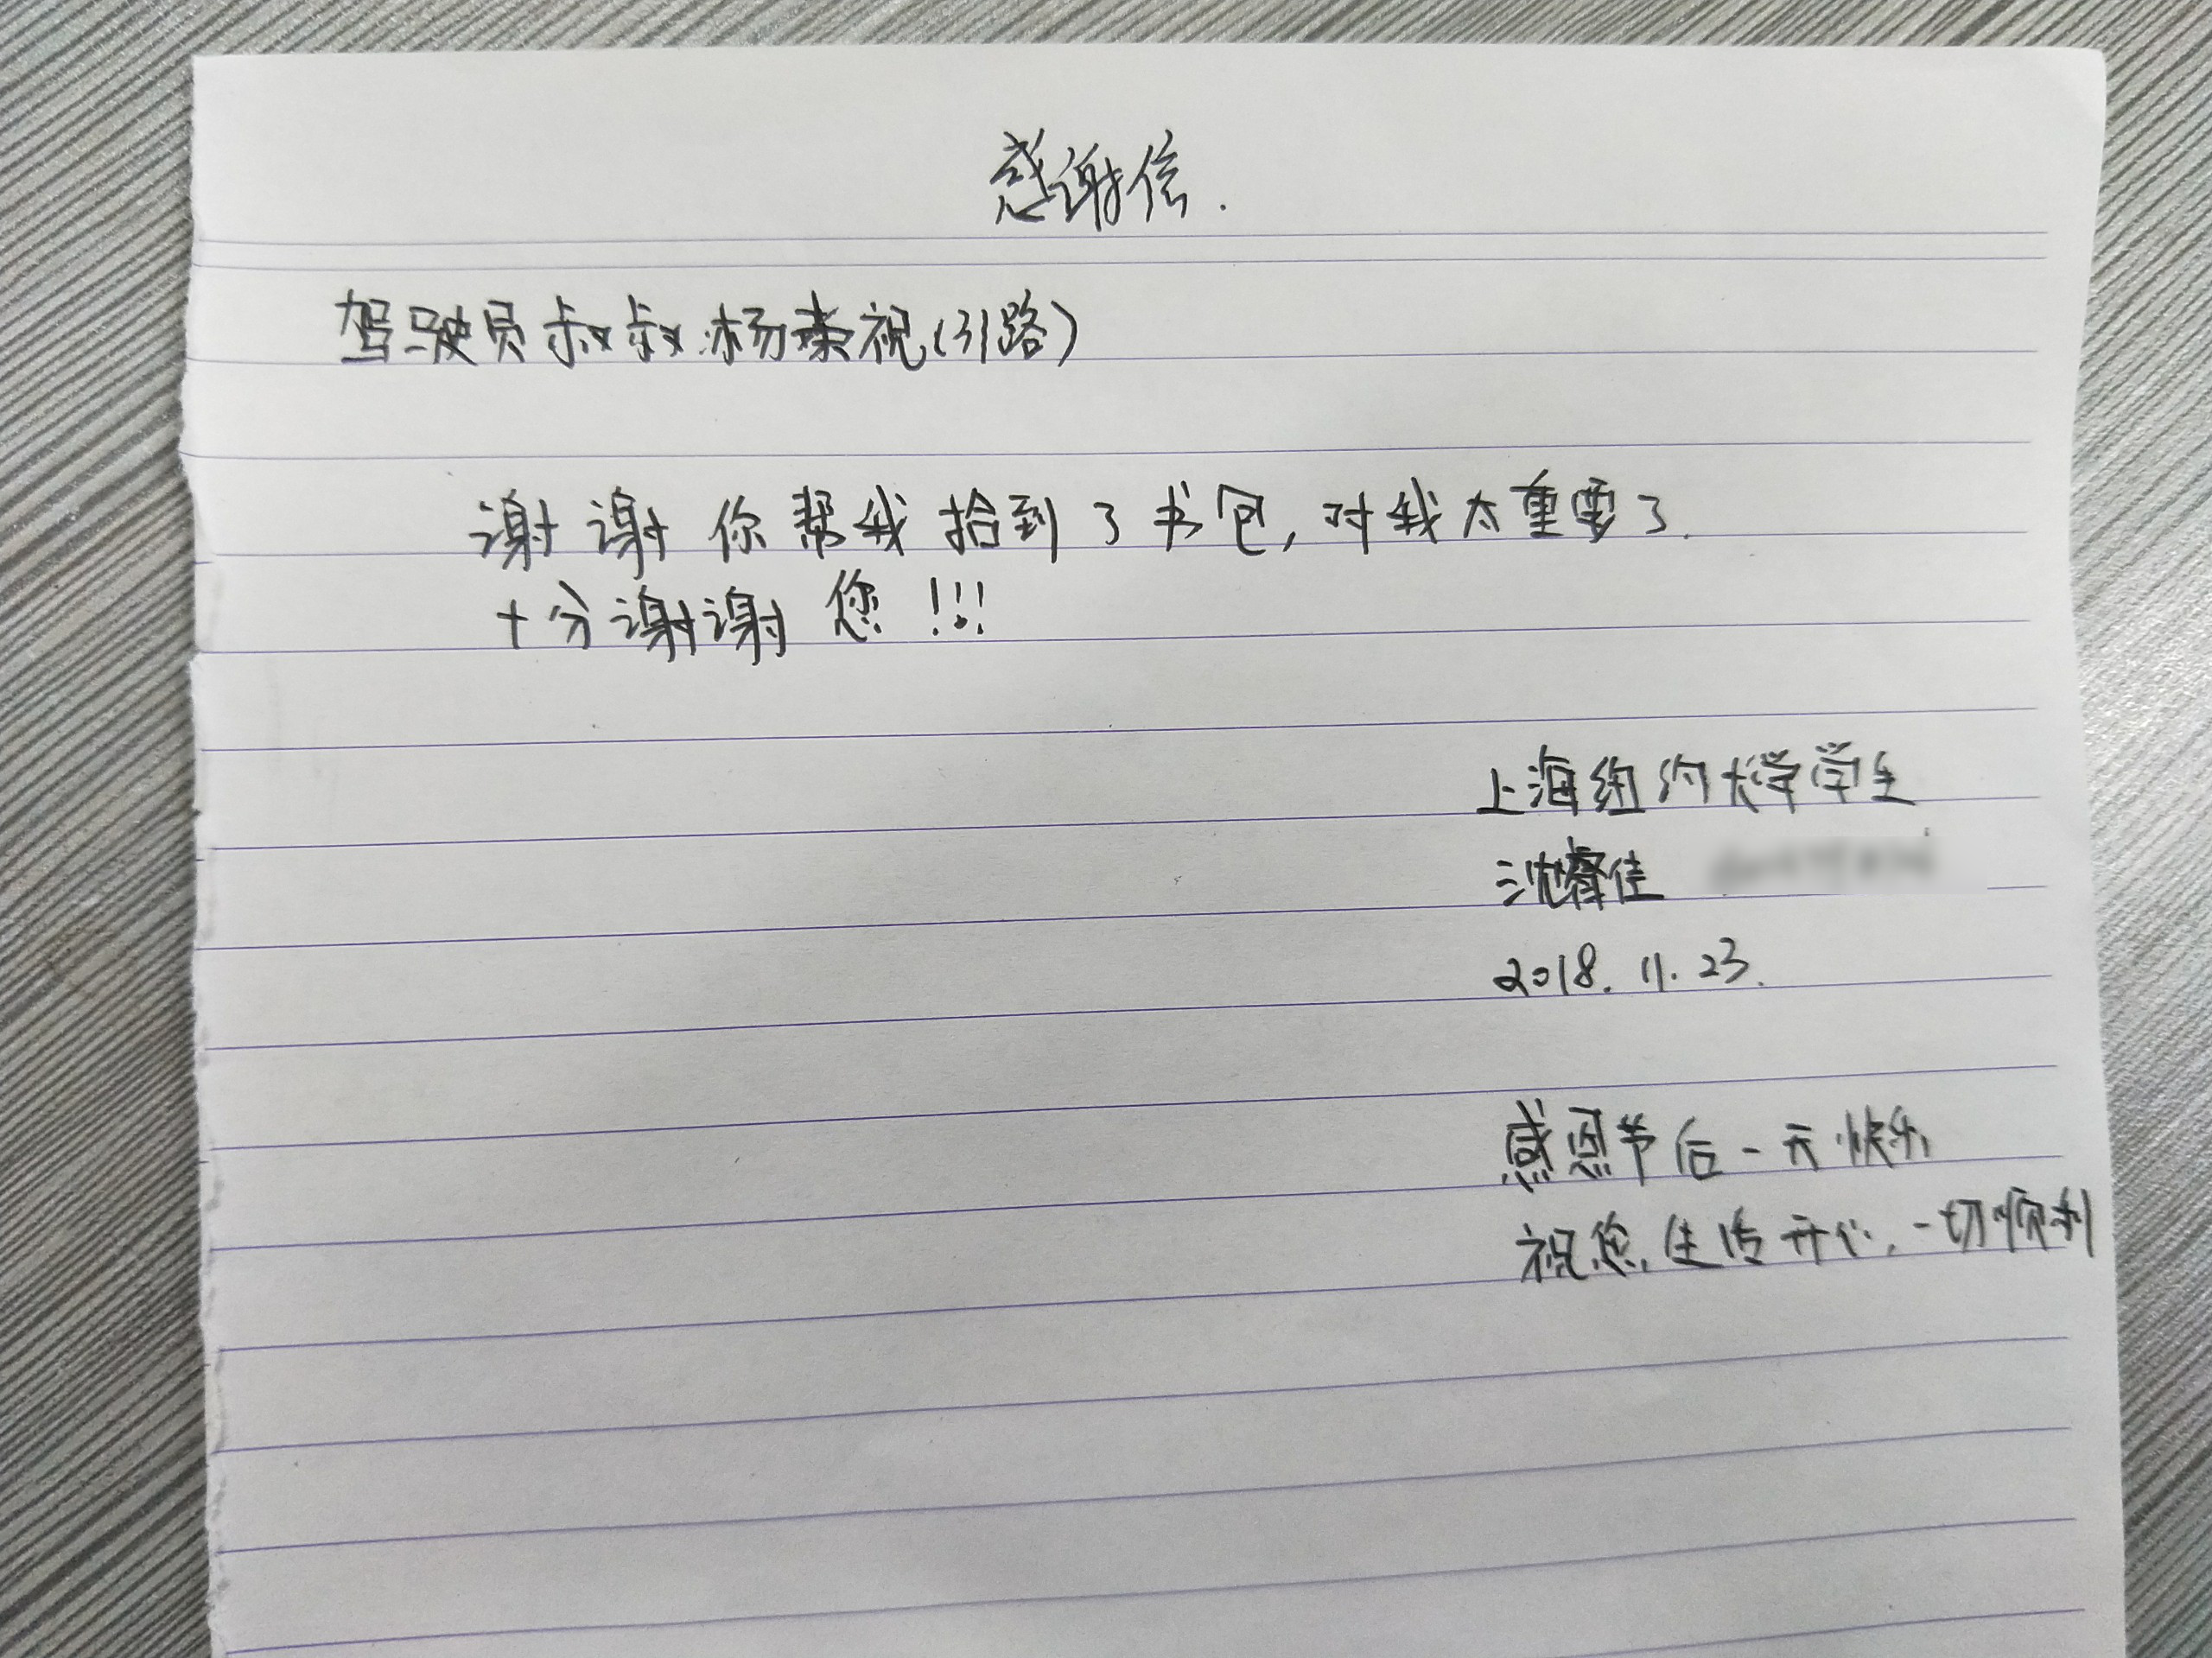 感谢信.
驾驶员叔叔杨荣祝(31路)
谢谢你帮我拾到了书包,对我太重要了.
十分谢谢您!!!
上海纽约大学学生
沈睿佳
2018.11.23.
感恩节后一天快乐
祝您生活开心.一切顺利